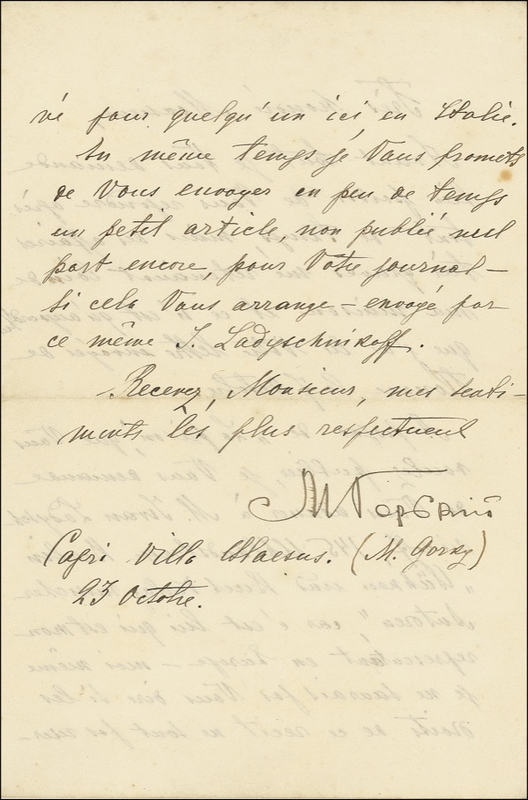 vé pour quelqu'un ici en Italie.
En même temps je Vous promets
de Vous envoyer en peu de temps
un petit article, non publié null
part encore, pour Votre journal –
si cela Vous arrange – envoyé par
ce même J. Ladyschnikoff.
Recevez, Monsieur, mes senti-
ments lès plus respectueul
М Горький
Capri Villa Blaesus. (M. Gorky)
23 Octobre.